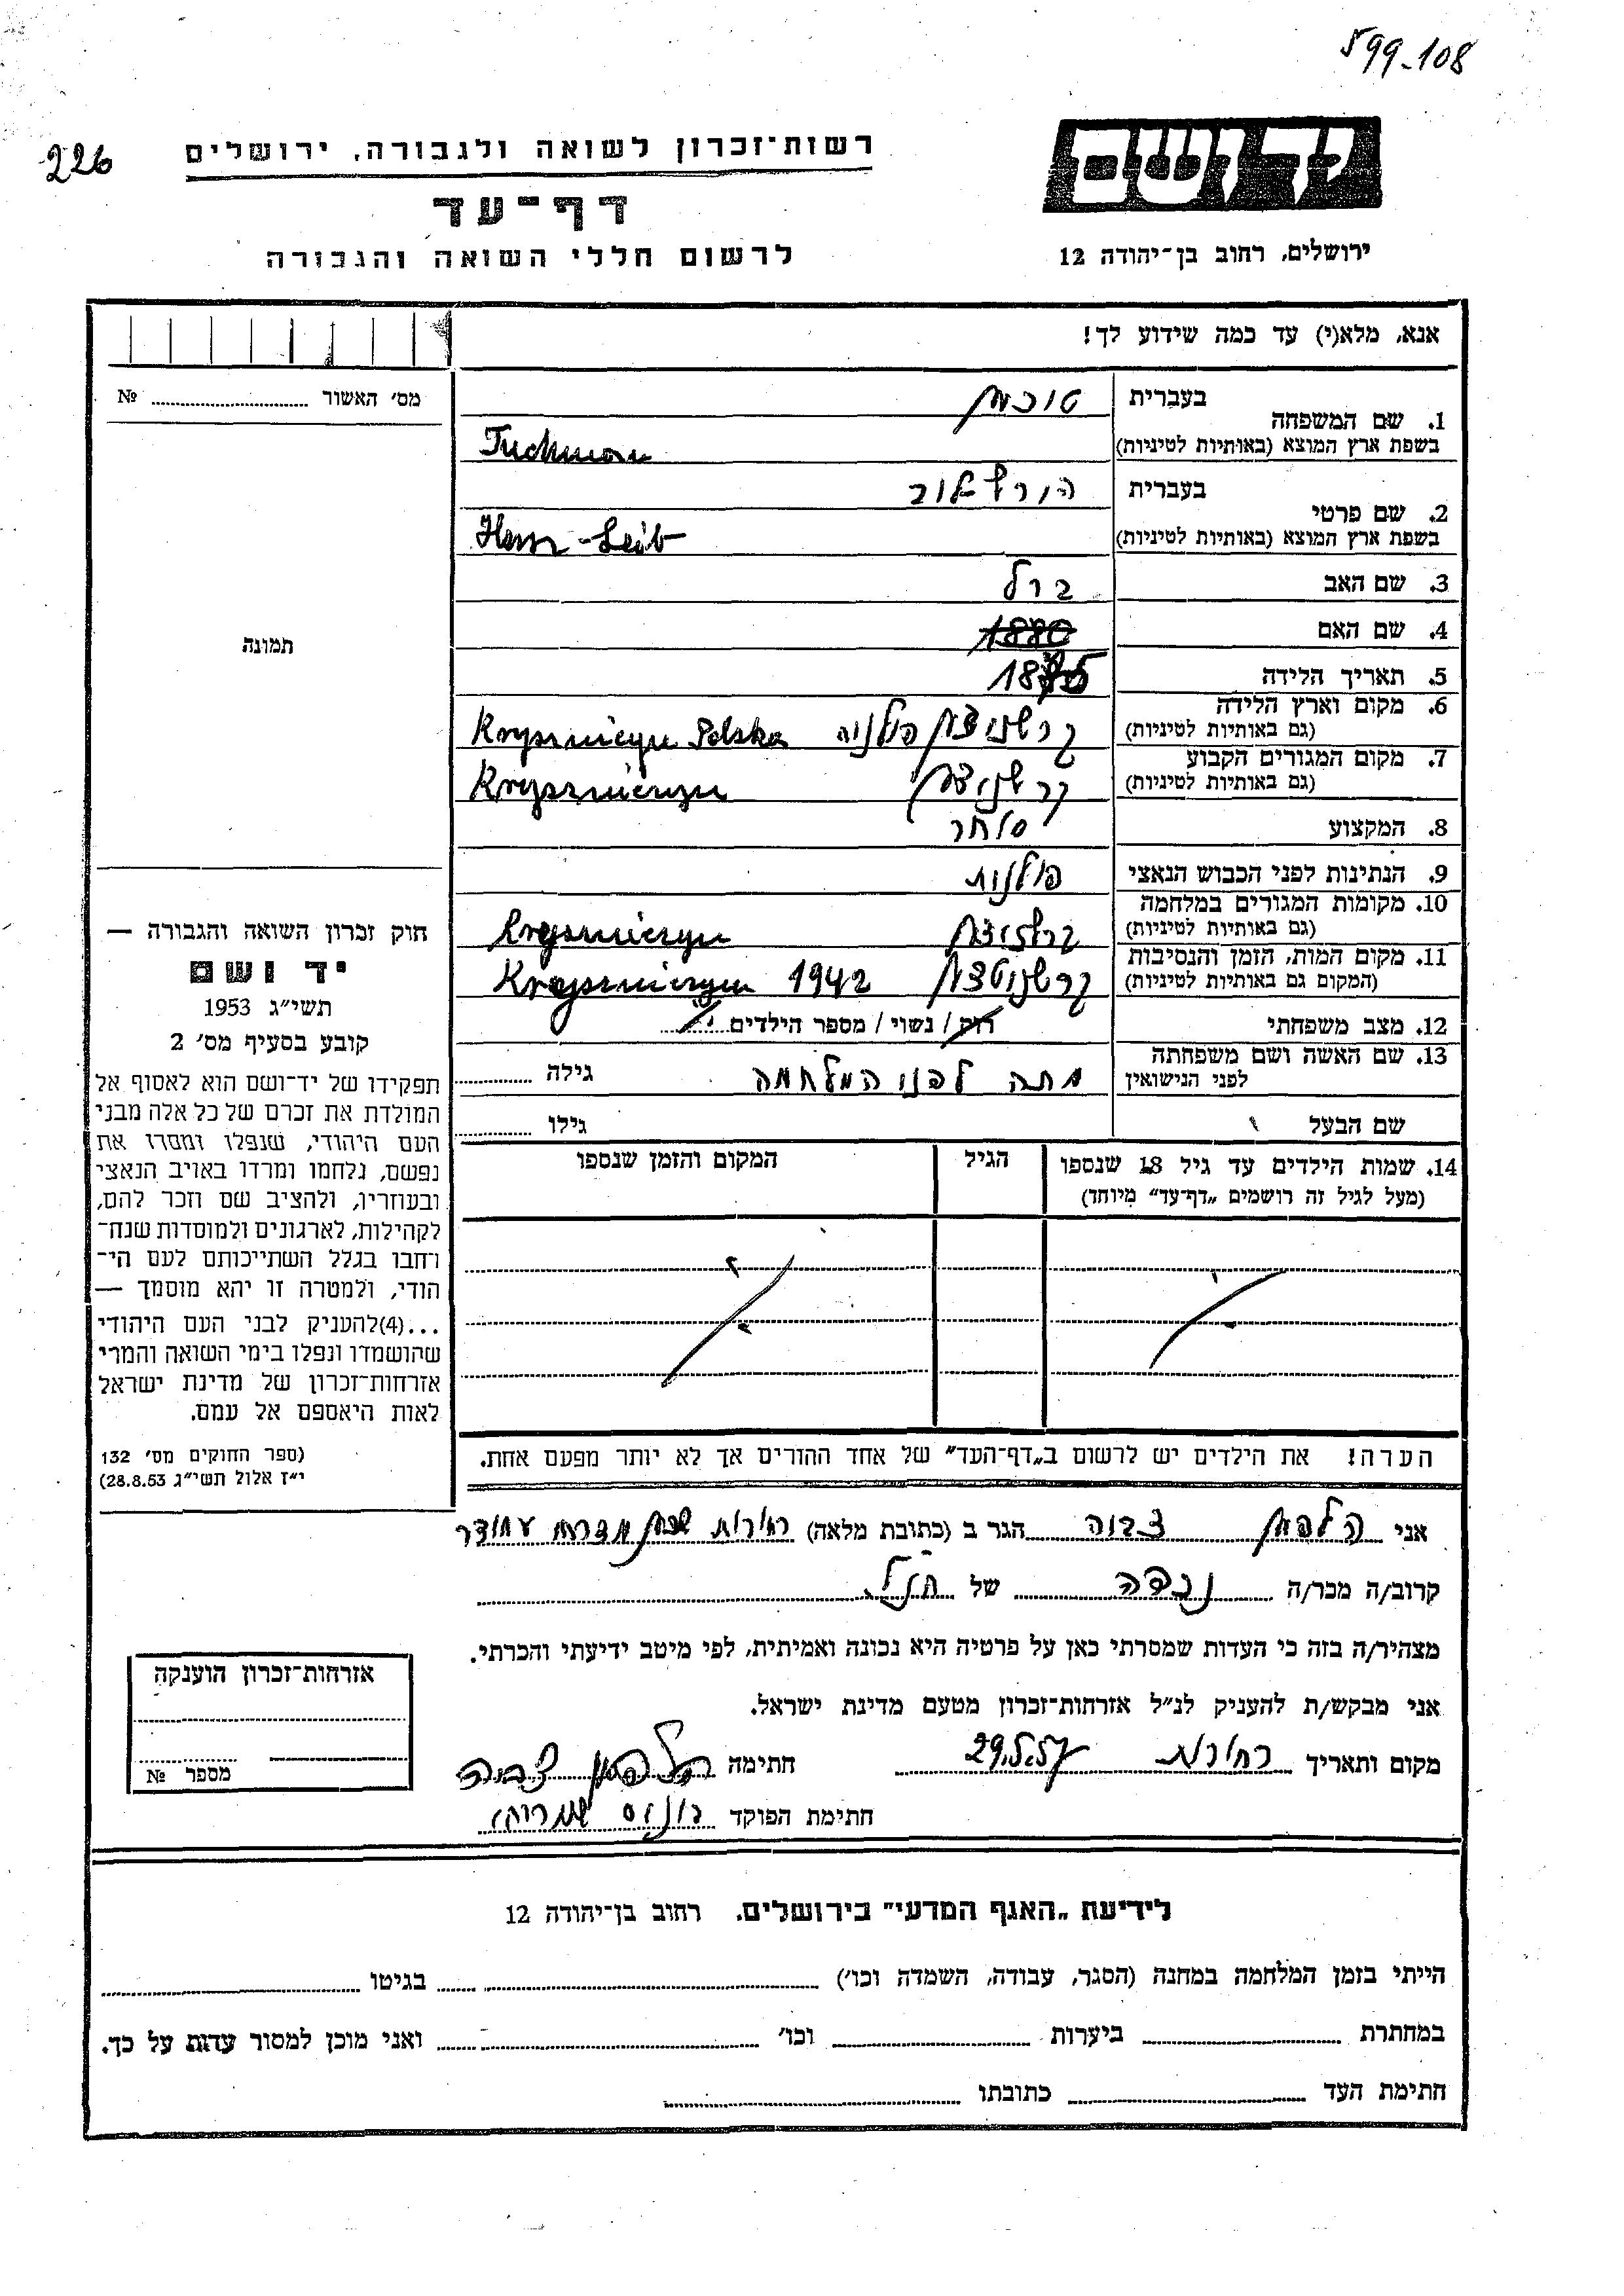 599-108
226
יד ושם
רשות־זכרון לשואה ולגבורה, ירושלים
דף־עד
לרשום חללי השואה והגבורה
ירושלים, רחוב בן־יהודה 12
אנא, מלא(י) עד כמה שידוע לך!
מס׳ האשור № 
1. שם המשפחה
בעברית טוכמן
בשפת ארץ המוצא (באותיות לטיניות) Tuchman
2. שם פרטי
בעברית הורש לוב
בשפת ארץ המוצא (באותיות לטיניות) Hersz-Leib
3. שם האב ברל
4. שם האם 1880
5. תאריך הלידה
6. מקום וארץ הלידה
(גם באותיות לטיניות) פולניה Polska
7. מקום המגורים הקבוע
(גם באותיות לטיניות)
8. המקצוע סוחר
9. הנתינות לפני הכבוש הנאצי פולנית
10. מקומות המגורים במלחמה
(גם באותיות לטיניות)
11. מקום המות, הזמן והנסיבות
(המקום גם באותיות לטיניות) 1942
12. מצב משפחתי רווק / נשוי / מספר הילדים
13. שם האשה ושם משפחתה
לפני הנישואין מתה לפני המלחמה גילה
שם הבעל גילו
14. שמות הילדים עד גיל 18 שנספו
(מעל לגיל זה רושמים „דף־עד״ מיוחד)
הגיל
המקום והזמן שנספו
הערה! את הילדים יש לרשום ב„דף־העד״ של אחד ההורים אך לא יותר מפעם אחת.
תמונה
חוק זכרון השואה והגבורה —
יד ושם
תשי״ג 1953
קובע בסעיף מס׳ 2
תפקידו של יד־ושם הוא לאסוף אל
המולדת את זכרם של כל אלה מבני
העם היהודי, שנפלו ומסרו את
נפשם, נלחמו ומרדו באויב הנאצי
ובעוזריו, ולהציב שם וזכר להם,
לקהילות, לארגונים ולמוסדות שנח־
רבו בגלל השתייכותם לעם הי־
הודי, ולמטרה זו יהא מוסמך —
...(4)להעניק לבני העם היהודי
שהושמדו ונפלו בימי השואה והמרי
אזרחות־זכרון של מדינת ישראל
לאות היאספם אל עמם.
(ספר החוקים מס׳ 132
י״ז אלול תשי״ג 28.8.53)
אני הלפמן צביה הגר ב (כתובת מלאה) רחובות שכון מזרח
קרוב/ה מכר/ה נכדה של הנ״ל
מצהיר/ה בזה כי העדות שמסרתי כאן על פרטיה היא נכונה ואמיתית, לפי מיטב ידיעתי והכרתי.
אני מבקש/ת להעניק לנ״ל אזרחות־זכרון מטעם מדינת ישראל.
מקום ותאריך רחובות 29.5.57 חתימה הלפמן צביה
חתימת הפוקד
אזרחות־זכרון הוענקה
מספר №
לידיעת „האגף המדעי״ בירושלים, רחוב בן־יהודה 12
הייתי בזמן המלחמה במחנה (הסגר, עבודה, השמדה וכו׳) בגיטו
במחתרת ביערות וכו׳ ואני מוכן למסור עדות על כך.
חתימת העד כתובתו